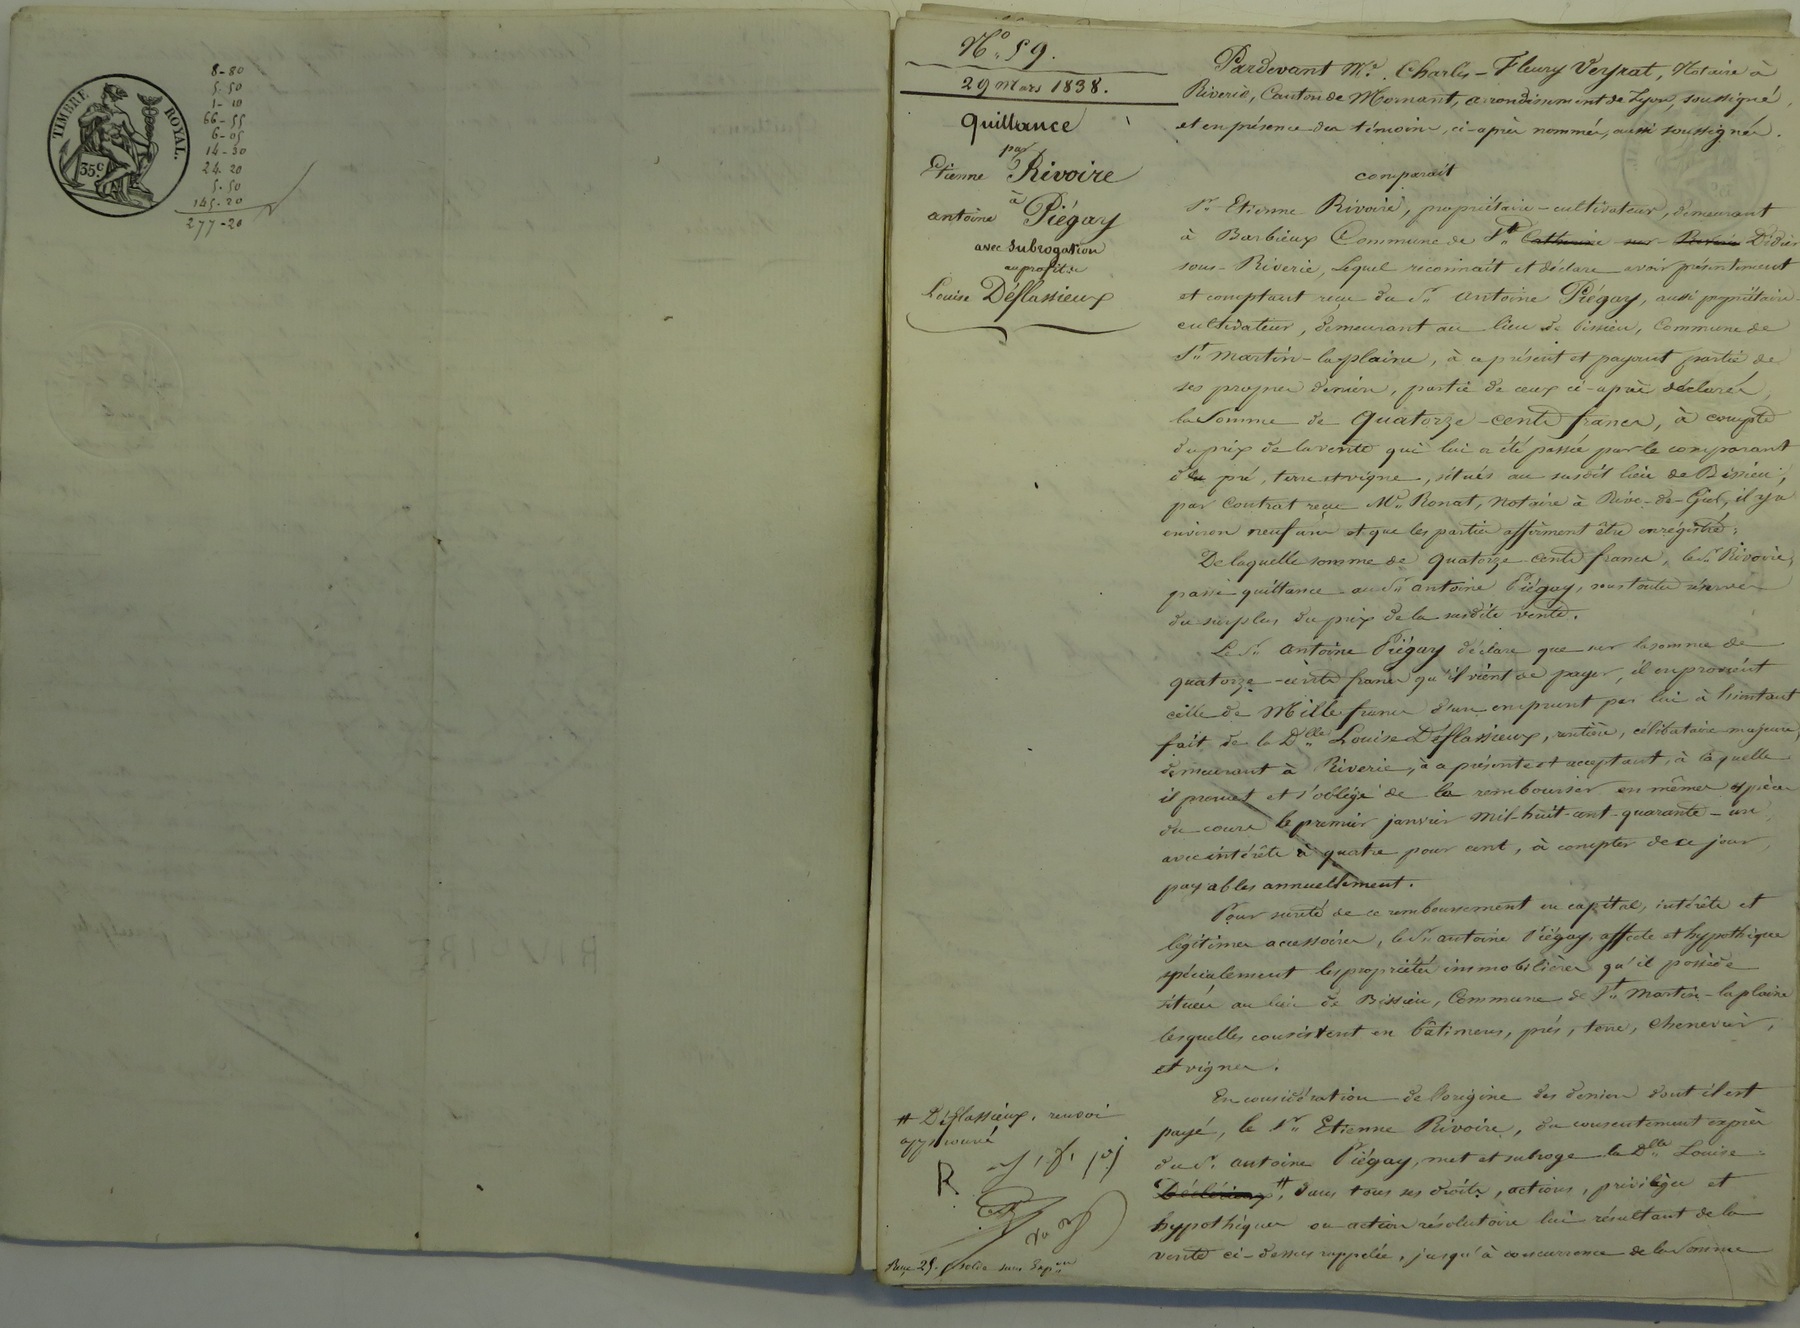 TIMBRE ROYAL.
35c
8-80
5.50
1-10
66-55
6-05
14-30
24.20
5.50
145-20
277-20
RIVOIRE
N.º 59.
29 Mars 1838.
Quittance
par
Etienne Rivoire
à
antoine Piégay
avec subrogation
au profit de
Louise Déflassieux
# Déflassieux, renvoi
approuvé
R
Pardevant Me. Charles-Fleury Veyrat, Notaire à
Riverie, Canton de Mornant, arrondissement de Lyon, soussigné,
et en présence des témoins, ci-après nommés, aussi soussignés.
comparait
Sr. Etienne Rivoire, propriétaire-cultivateur, demeurant
à Barbieux Commune de St. Catherine sur Riverie Didier
sous-Riverie, Lequel reconnait et déclare avoir présentement
et comptant reçu du Sr. antoine Piégay, aussi propriétaire-
cultivateur, demeurant au lieu de bissieu, Commune de
St. Martin-la-plaine, à ce présent et payant partie de
ses propres deniers, partie de ceux ci-après déclarés,
la Somme de Quatorze-cents francs, à compte
du prix de la vente qui lui a été passée par le comparant
de pré, terre et vigne, situés au susdit lieu de Bissieu,
par Contrat reçu Me. Ronat, Notaire à Rive-de-Gier, il y a
environ neuf ans et que les parties affirment être enrégistré.
De laquelle somme de Quatorze-cents francs, le Sr. Rivoire,
passe quittance au Sr. antoine Piégay, sous toutes réserves
du surplus du prix de la susdite vente.
Le Sr. antoine Piégay déclare que sur la somme de
quatorze-cents francs qu'il vient de payer, il en provient
celle de Mille francs d'un emprunt par lui à l'instant
fait de la Dlle. Louise Déflassieux, rentière, célibataire majeure,
demeurant à Riverie, à ce présente et acceptant, à laquelle
il promet et s'oblige de la rembourser en mêmes espèces
du cours le premier janvier mil-huit-cent-quarante-un,
avec intérêts à quatre pour cent, à compter de ce jour,
payables annuellement.
Pour sureté de ce remboursement en capital, intérêts et
légitimes accessoires, le Sr. antoine Piégay, affecte et hypothèque
spécialement les propriétés immobilières qu'il possède
situées au lieu de Bissieu, Commune de St. Martin-la plaine
lesquelles consistent en bâtimens, prés, terre, chenevier,
et vignes.
En considération de l'origine des deniers dont il est
payé, le Sr. Etienne Rivoire, du consentement exprès
du Sr. antoine Piégay, met et subroge la Dlle. Louise
#, dans tous ses droits, actions, privilèges et
hypothèques ou action résolutoire lui résultant de la
vente ci-dessus rappelée, jusqu'à concurrence de la Somme